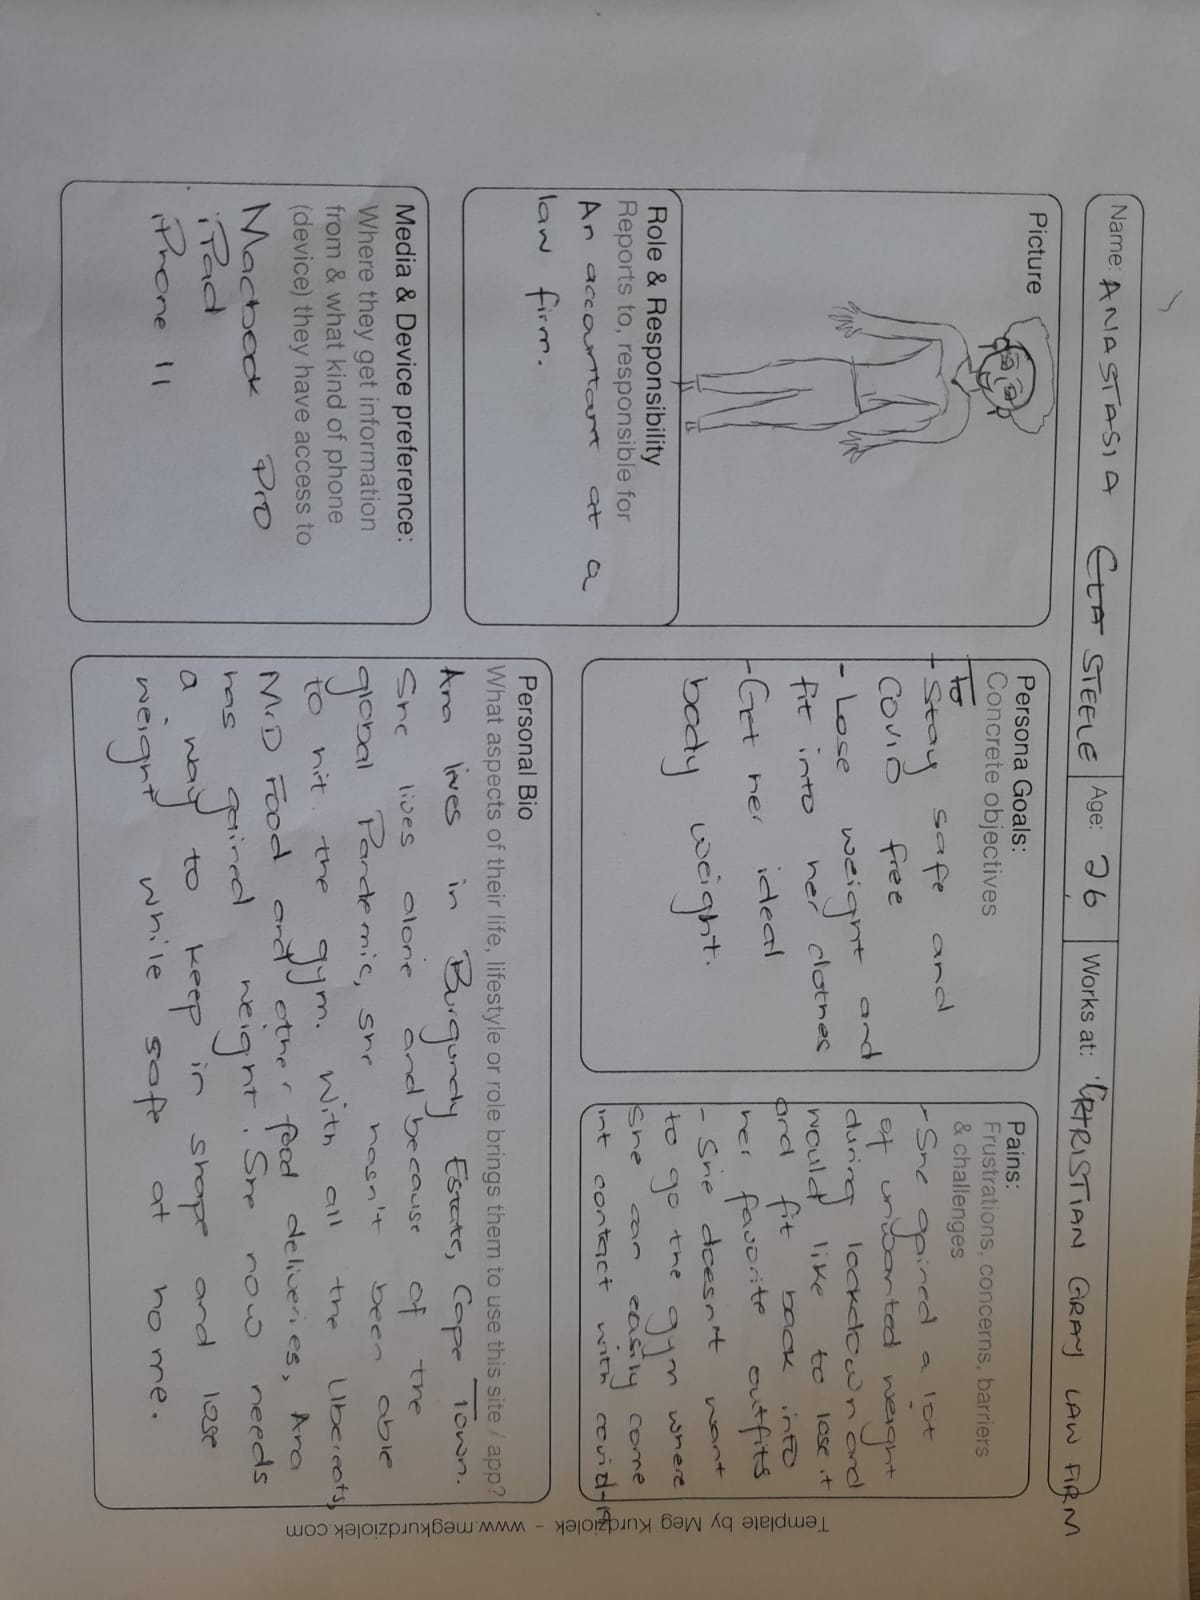 Name: ANASTASIA STEELE Age: 26 Works at: CHRISTIAN GRAY LAW FIRM
Picture
Role & Responsibility
Reports to, responsible for
An accountant at a
law firm.
Media & Device preference:
Where they get information
from & what kind of phone
(device) they have access to
Macbook Pro
iPad
iPhone 11
Persona Goals:
Concrete objectives
To
- Stay safe and
COVID free
- Lose weight and
fit into her clothes
- Get her ideal
body weight.
Pains:
Frustrations, concerns, barriers
& challenges
- She gained a lot
of unwanted weight
during lockdown and
would like to lose it
and fit back into
her favorite outfits
- She doesn't want
to go the gym where
she can easily come
int contact with covid-19
Personal Bio
What aspects of their life, lifestyle or role brings them to use this site / app?
Ana lives in Burgundy Estate, Cape Town.
She lives alone and because of the
global Pandemic, she hasn't been able
to hit the gym. With all the Ubereats,
Mr.D Food and other food deliveries, Ana
has gained weight. She now needs
a way to keep in shape and lose
weight while safe at home.
Template by Meg Kurdziolek - www.megkurdziolek.com